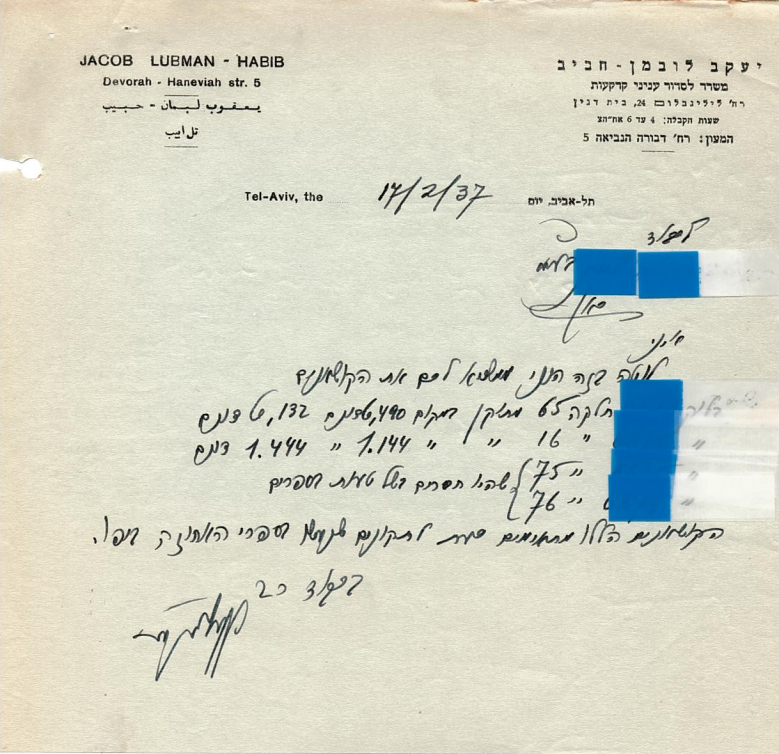 JACOB LUBMAN - HABIB
Devorah - Haneviah str. 5
يعقوب لبمان - حبيب
تل ابيب
יעקב לובמן - חביב
משרד לסדור עניני קרקעות
רח' לילינבלום 24, בית דנין
שעות הקבלה: 4 עד 6 אחה"צ
המעון: רח' דבורה הנביאה 5
Tel-Aviv, the 17/2/37 תל-אביב, יום
לכבוד
כאן
לוטה בזה הנני ממציא לכם את הקושאנים
חלקה 65 מתוקן במקום
" 16 " " " 1.144 " 1.444 דונם
" " 75
" " 76
שהיו חסרים בשל טעות בספרים
הקושאנים הללו מתאימים כעת לתקונים שנעשו בספרי האחוזה ביפו.
בכבוד רב